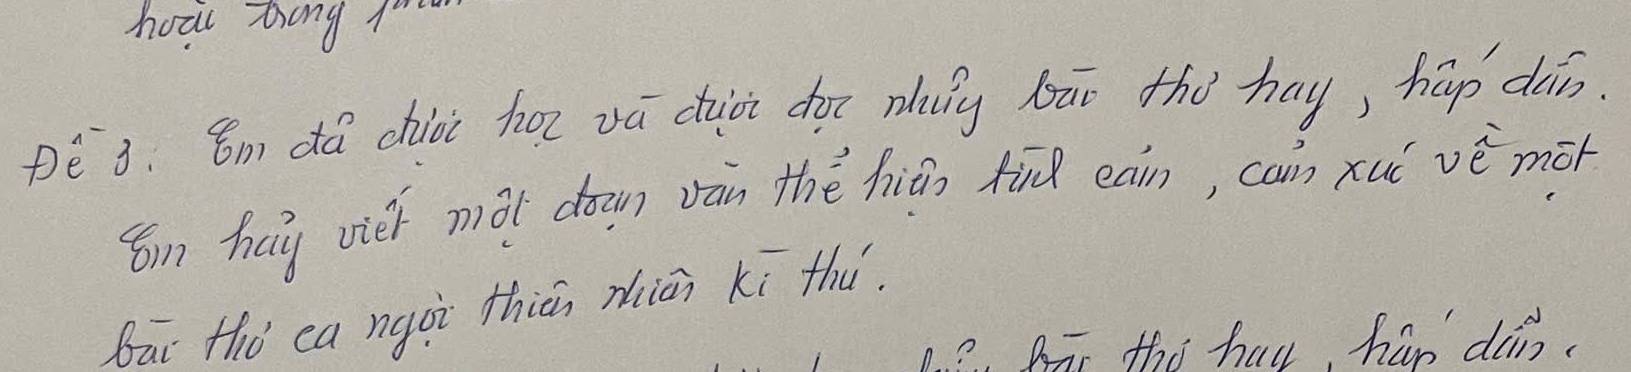 hoặc trong
Đề 3. Em đã được học và được đọc những bài thơ hay, hấp dẫn.
Em hãy viết một đoạn văn thể hiện tình cảm, cảm xúc về một
bài thơ ca ngợi thiên nhiên kì thú.
bài thơ hay, hấp dẫn.